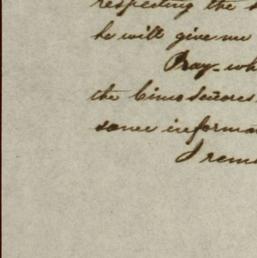 respecting the
he will give me
Pray - wh
the
some informa
I rema